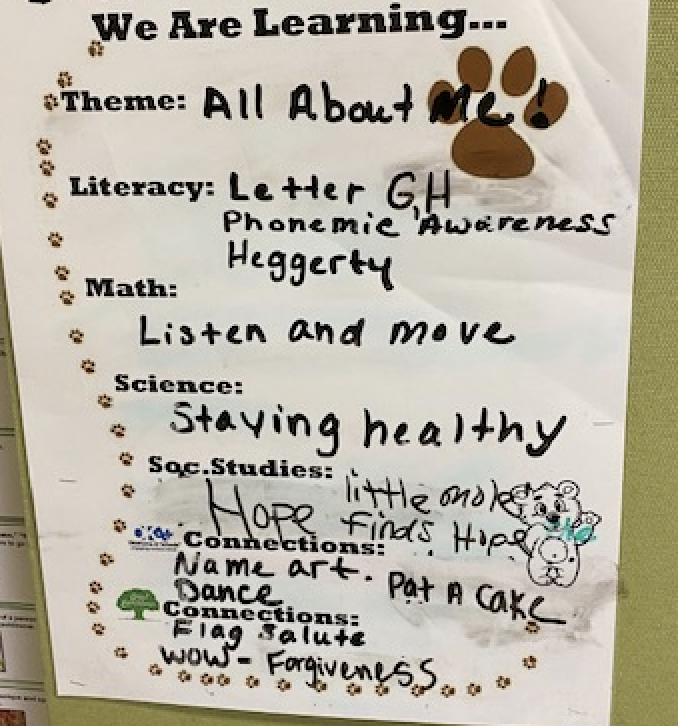 We Are Learning...
Theme: All About Me!
Literacy: Letter G,H
Phonemic Awareness
Heggerty
Math:
Listen and move
Science:
Staying healthy
Soc.Studies: little mole
Hope finds Hope
Connections:
Name art. Pat A Cake
Dance
Connections:
Flag Salute
WOW - Forgiveness